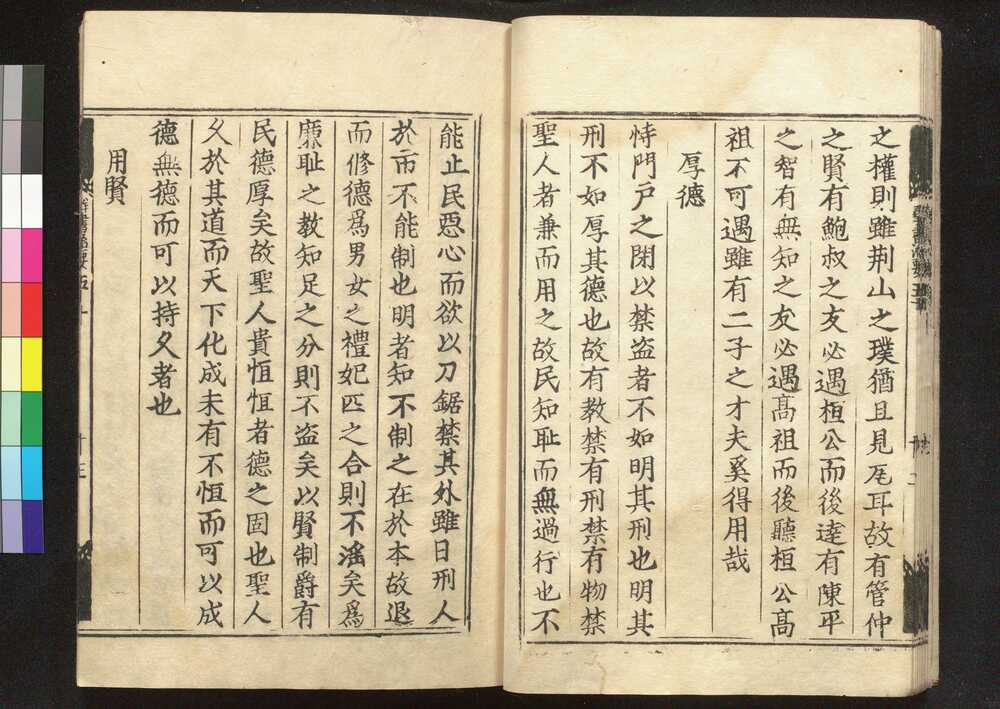 之權則雖荆山之璞猶且見尾耳故有管仲
之賢有鮑叔之友必遇桓公而後達有陳平
之智有無知之友必遇髙祖而後聽桓公髙
祖不可遇雖有二子之才夫奚得用哉
厚德
恃門户之閉以禁盗者不如明其刑也明其
刑不如厚其德也故有教禁有刑禁有物禁
聖人者兼而用之故民知耻而無過行也不
能止民惡心而欲以刀鋸禁其外雖日刑人
於市不能制也明者知不制之在於本故退
而修德爲男女之禮妃匹之合則不滛矣爲
廉耻之教知足之分則不盗矣以賢制爵有
民德厚矣故聖人貴恒恒者德之固也聖人
久於其道而天下化成未有不恒而可以成
德無德而可以持久者也
用賢